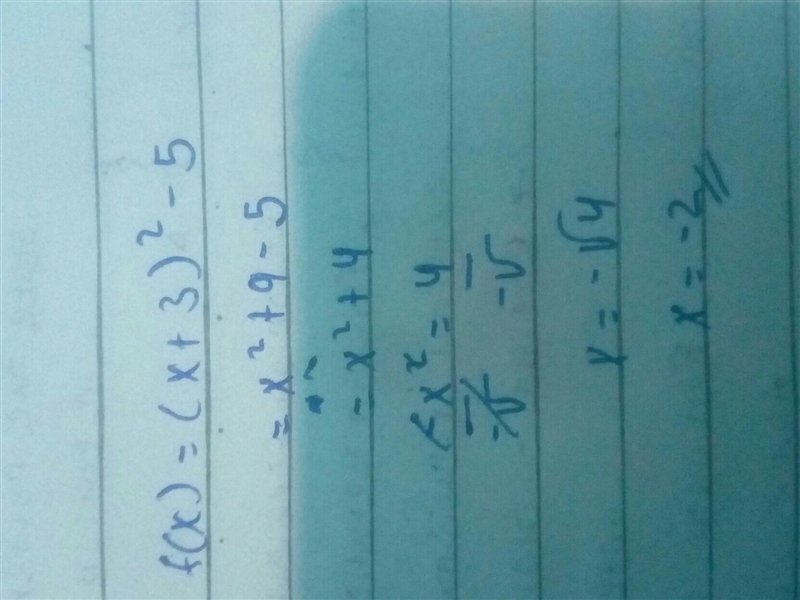 f(x) = (x+3)² - 5
= x² + 9 - 5
= x² + 4
-x² = 4
-√ -√
x = -√4
x = -2